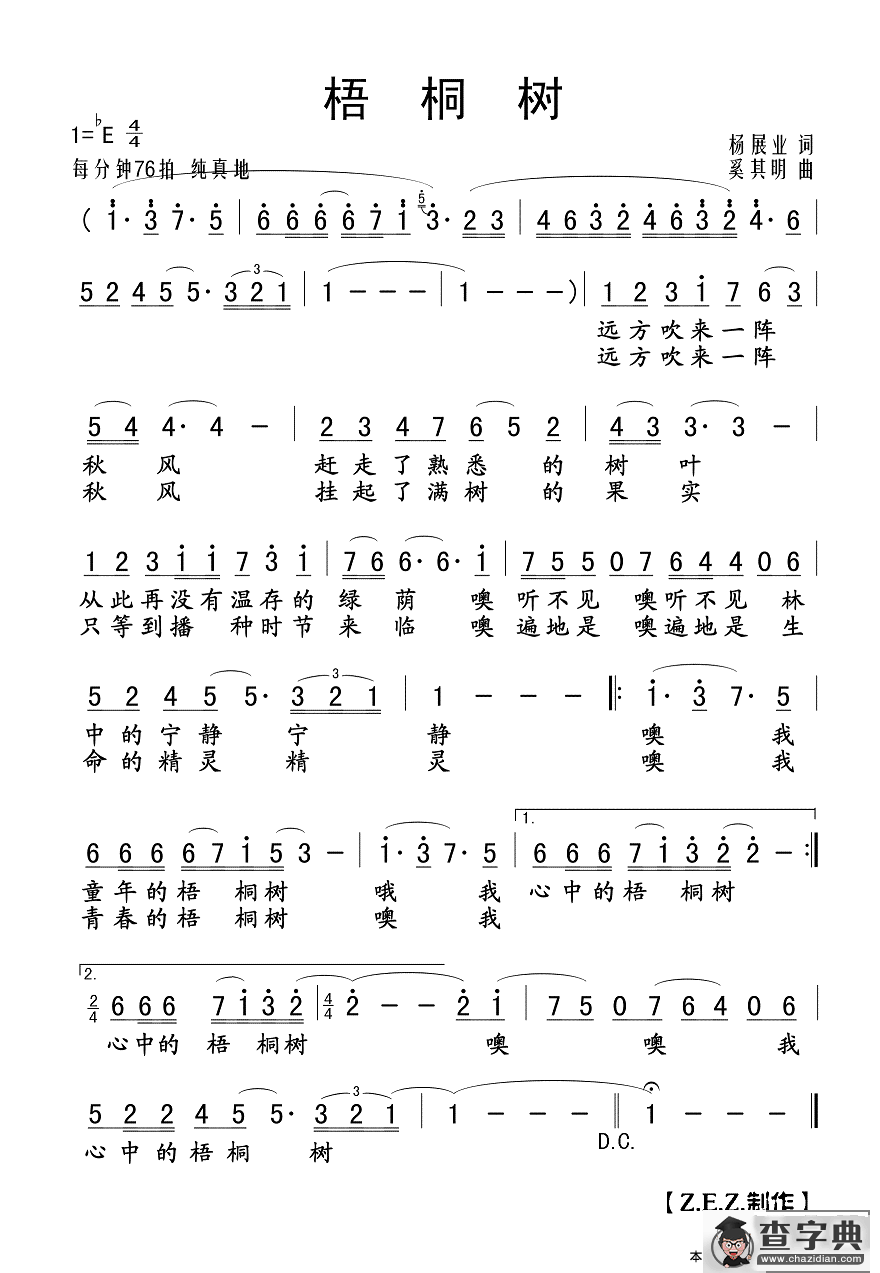 梧桐树
1=♭E 4/4
杨展业 词
每分钟76拍 纯真地
奚其明 曲
( 1· 3 7· 5 | 6 6 6 6 7 1 5 3· 2 3 | 4 6 3 2 4 6 3 2 4· 6 |
5 2 4 5 5· 3 3 2 1 | 1 - - - | 1 - - - ) | 1 2 3 1 7 6 3 |
远方吹来一阵
远方吹来一阵
5 4 4· 4 - | 2 3 4 7 6 5 2 | 4 3 3· 3 - |
秋风 赶走了熟悉的树叶
秋风 挂起了满树的果实
1 2 3 1 1 7 3 1 | 7 6 6· 6· 1 | 7 5 5 0 7 6 4 4 0 6 |
从此再没有温存的绿荫 噢听不见 噢听不见 林
只等到播种时节来临 噢遍地是 噢遍地是 生
5 2 4 5 5· 3 3 2 1 | 1 - - - |: 1· 3 7· 5 |
中的宁静宁静 噢我
命的精灵精灵 噢我
1.
6 6 6 6 7 1 5 3 - | 1· 3 7· 5 | 6 6 6 7 1 3 2 2 - :|
童年的梧桐树 哦我 心中的梧桐树
青春的梧桐树 噢我
2.
2/4 6 6 6 7 1 3 2 | 4/4 2 - - 2 1 | 7 5 0 7 6 4 0 6 |
心中的梧桐树 噢 噢 我
5 2 2 4 5 5· 3 3 2 1 | 1 - - - || 1 - - - ||
D.C.
心中的梧桐树
【Z.E.Z.制作】
查字典
www.chazidian.com
本